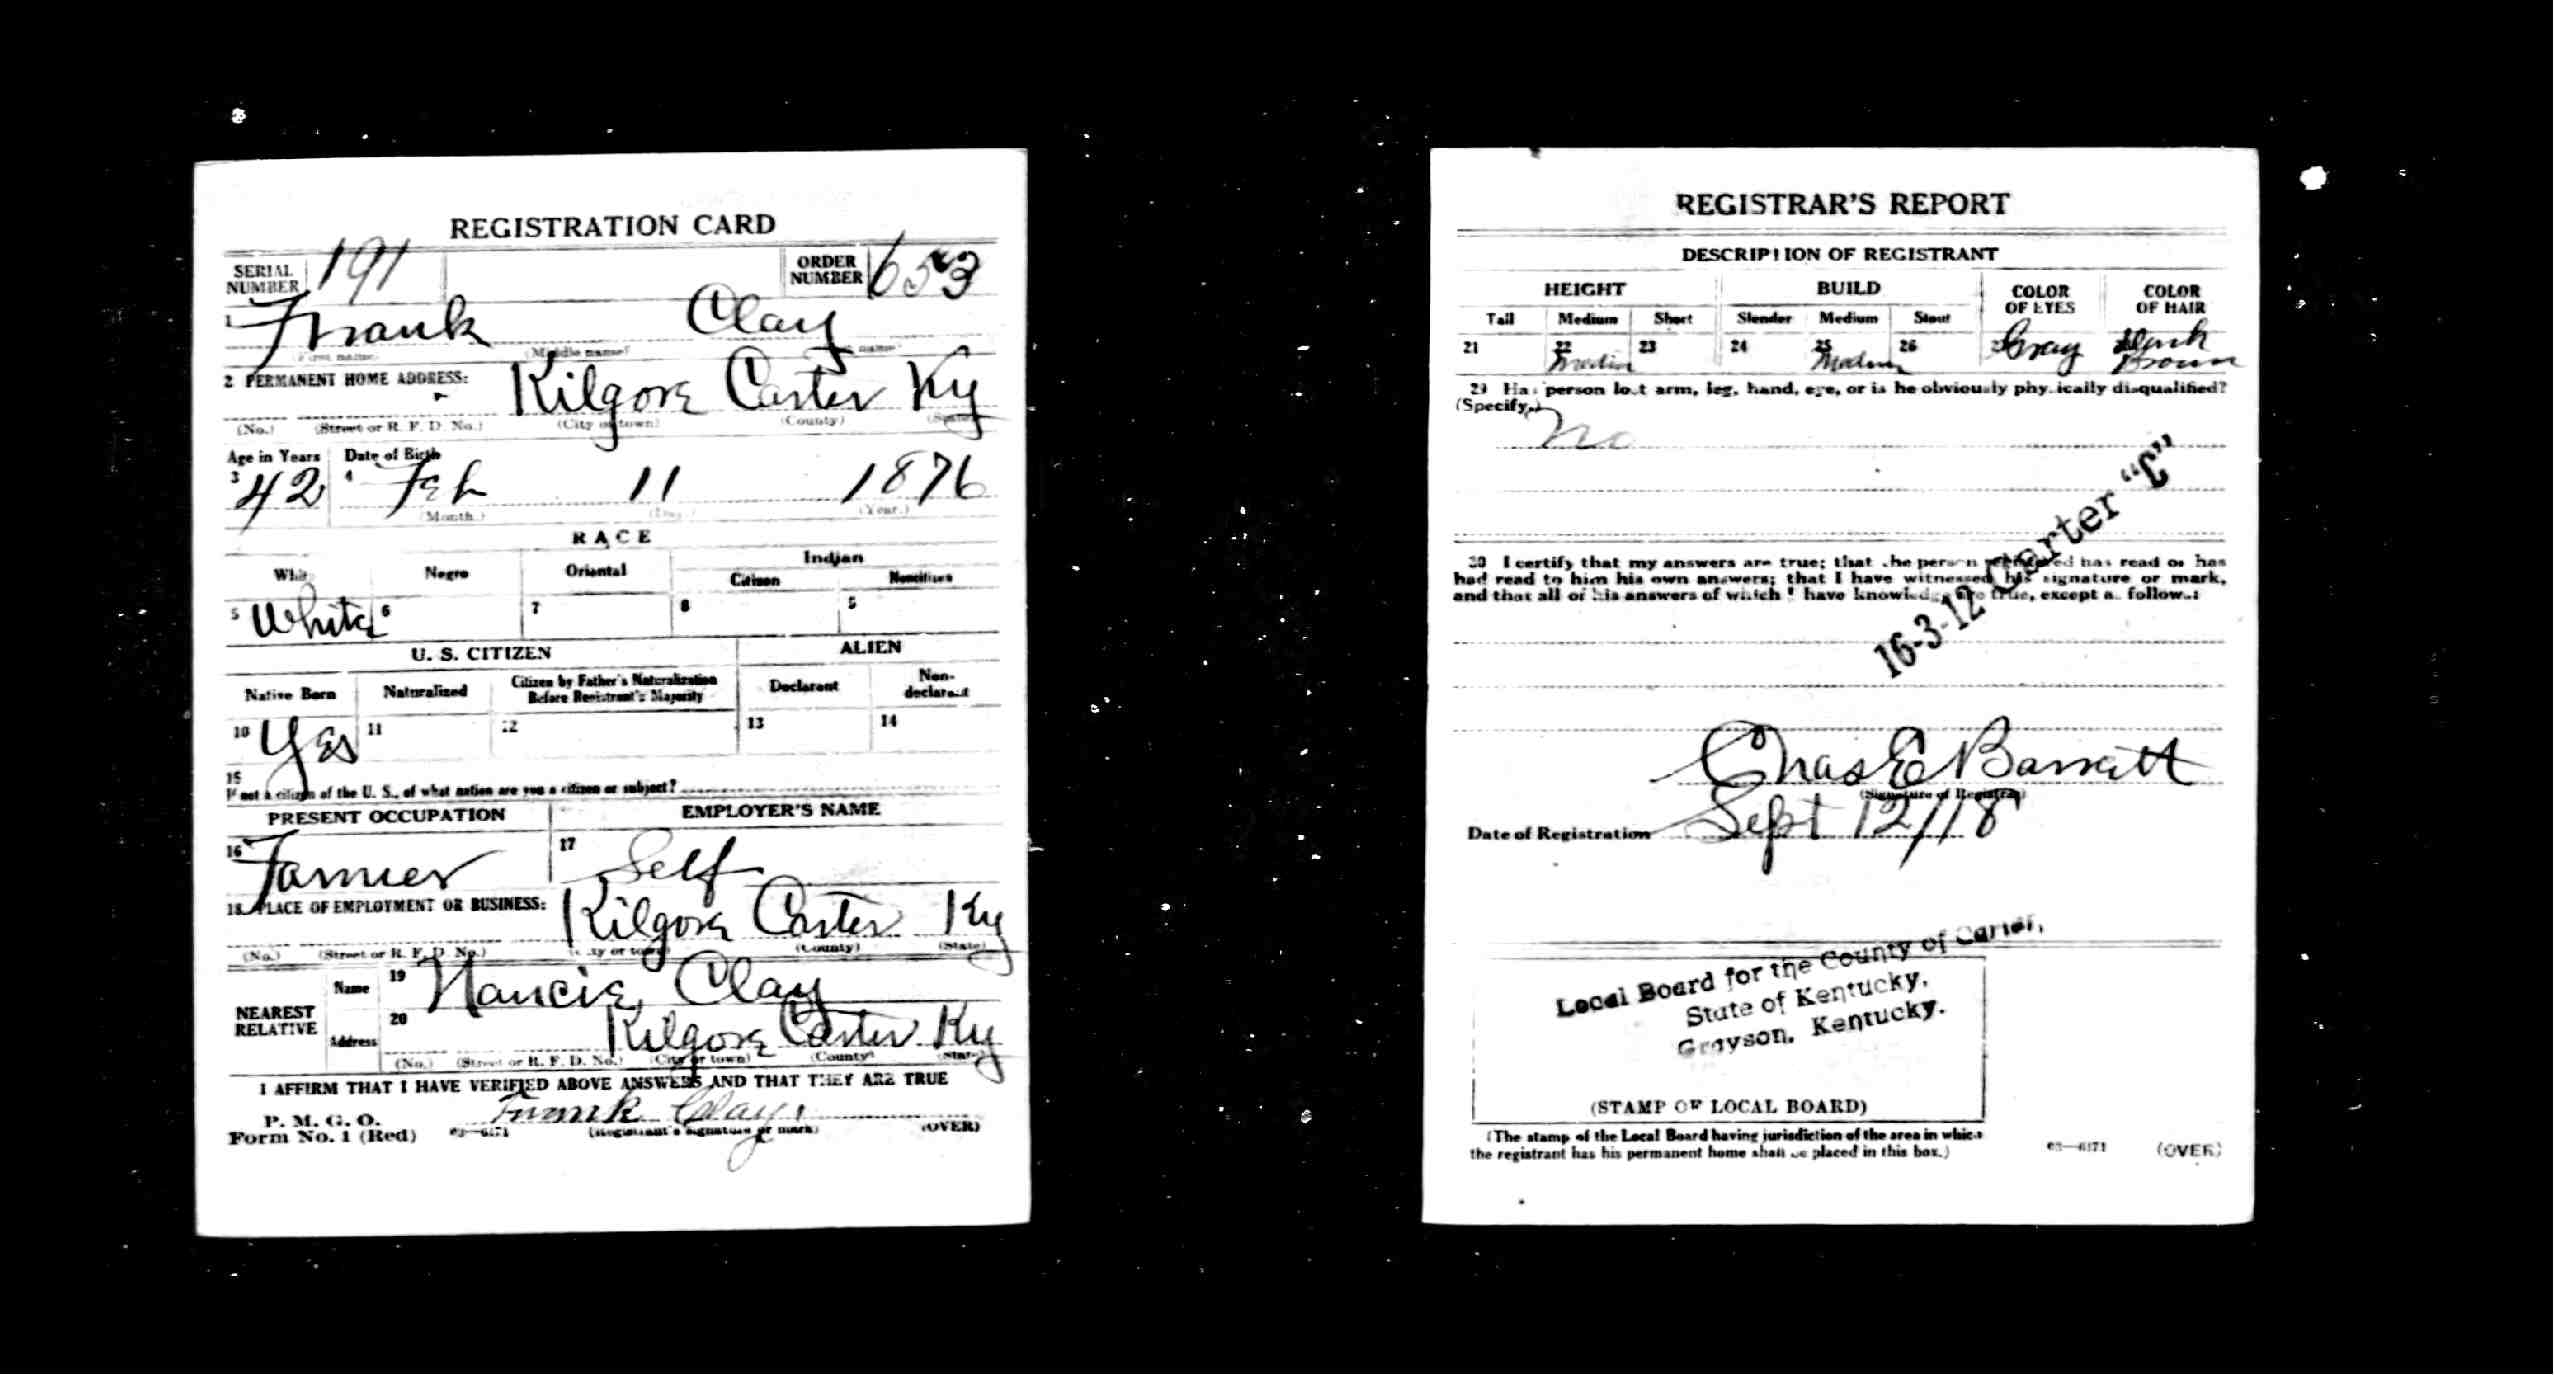 REGISTRATION CARD
SERIAL NUMBER 191 ORDER NUMBER 653
1 Frank Clay
(First name) (Middle name) name)
2 PERMANENT HOME ADDRESS:
Kilgore Carter Ky
(No.) (Street or R. F. D. No.) (City or town) (County) (State)
Age in Years Date of Birth
3 42 4 Feb 11 1876
(Month.) (Day.) (Year.)
RACE
White Negro Oriental Indian
Citizen Noncitizen
5 White 6 7 8 9
U. S. CITIZEN ALIEN
Native Born Naturalized Citizen by Father's Naturalization Before Registrant's Majority Declarant Non-declarant
10 Yes 11 12 13 14
15
If not a citizen of the U. S., of what nation are you a citizen or subject?
PRESENT OCCUPATION EMPLOYER'S NAME
16 Farmer 17 Self
18 PLACE OF EMPLOYMENT OR BUSINESS:
Kilgore Carter Ky
(No.) (Street or R. F. D. No.) (City or town) (County) (State)
NEAREST RELATIVE Name 19 Nancie Clay
Address 20 Kilgore Carter Ky
(No.) (Street or R. F. D. No.) (City or town) (County) (State)
I AFFIRM THAT I HAVE VERIFIED ABOVE ANSWERS AND THAT THEY ARE TRUE
P. M. G. O.
Form No. 1 (Red) 03—6171 Frank Clay
(Registrant's signature or mark) (OVER)
REGISTRAR'S REPORT
DESCRIPTION OF REGISTRANT
HEIGHT BUILD COLOR OF EYES COLOR OF HAIR
Tall Medium Short Slender Medium Stout
21 22 Medium 23 24 25 Medium 26 Gray Dark Brown
29 Has person lost arm, leg, hand, eye, or is he obviously physically disqualified?
(Specify.)
No
30 I certify that my answers are true; that the person registered has read or has
had read to him his own answers; that I have witnessed his signature or mark,
and that all of his answers of which I have knowledge are true, except as follows:
16-3-12 Carter "C"
Chas E Barratt
(Signature of Registrar)
Date of Registration Sept 12/18
Local Board for the County of Carter,
State of Kentucky,
Grayson, Kentucky.
(STAMP OF LOCAL BOARD)
(The stamp of the Local Board having jurisdiction of the area in which
the registrant has his permanent home shall be placed in this box.)
03—6171 (OVER)